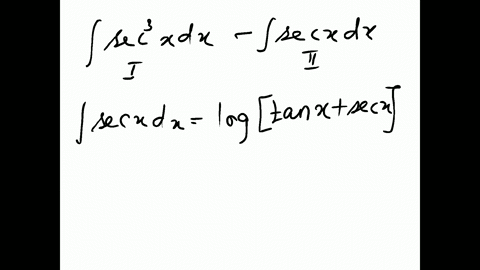 ∫ sec³ x dx − ∫ sec x dx
I II
∫ sec x dx = log [tan x + sec x]